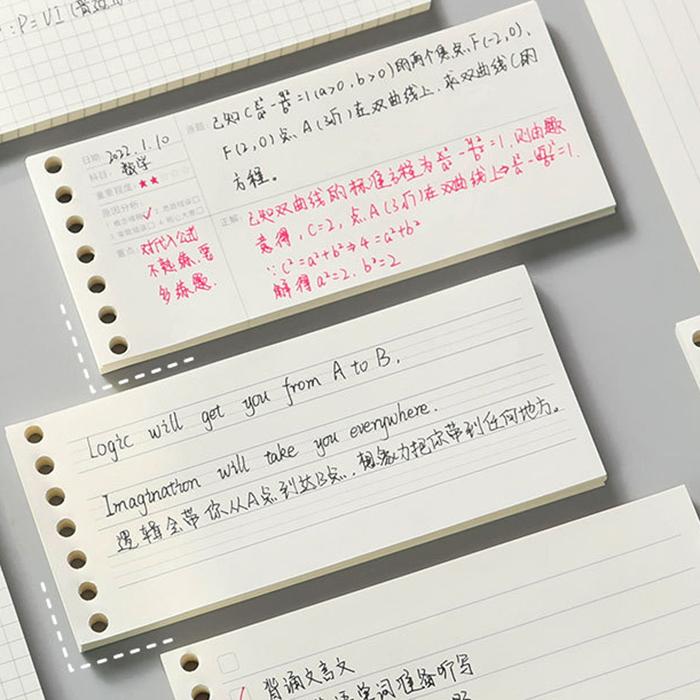 :P=UI
日期: 2022.1.10
科目: 数学
重要程度: ★★☆☆☆
原因分析:
重点: 对代入公式
不熟练,要
多练题.
原题: 已知C x²/a² - y²/b² =1(a>0,b>0)的两个焦点,F(-2,0),
F(2,0)点,A(3,√7)在双曲线上,求双曲线C的
方程。
正解: 已知双曲线的标准方程为 x²/a² - y²/b² =1,则由题
意得,C=2,点A(3,√7)在双曲线上
∵c²=a²+b²→4=a²+b²
解得a²=2.b²=2
Logic will get you from A to B,
Imagination will take you everywhere.
逻辑会带你从A点到达B点,想象力把你带到任何地方。
背诵文言文
单词准备听写